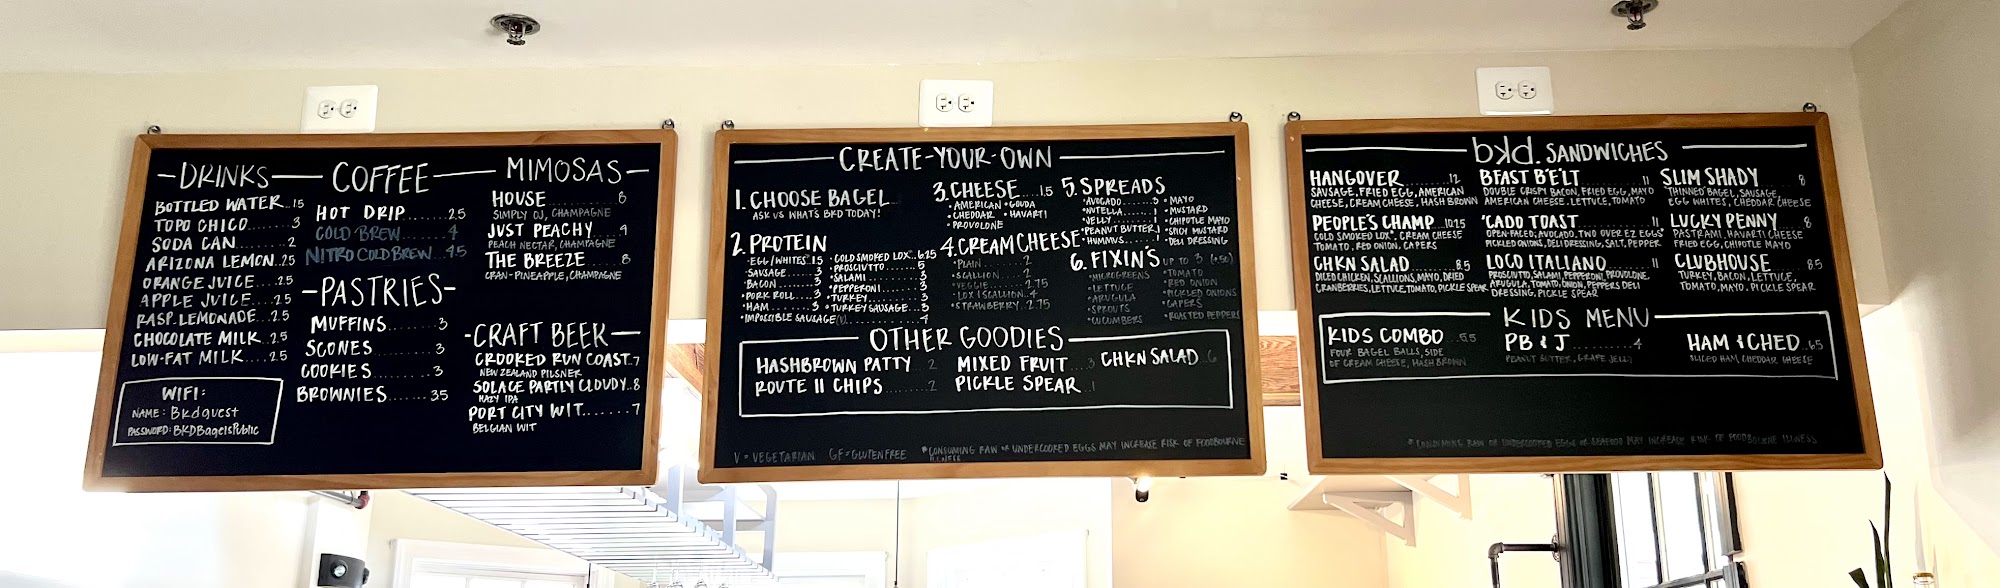 DRINKS
BOTTLED WATER..15
TOPO CHICO.....3
SODA CAN.......2
ARIZONA LEMON..25
ORANGE JUICE....25
APPLE JUICE....25
RASP. LEMONADE..25
CHOCOLATE MILK..25
LOW-FAT MILK....25
WIFI:
NAME: Bkdguest
PASSWORD: BKDBagelsPublic
COFFEE
HOT DRIP.......25
COLD BREW......4
NITRO COLD BREW..4.5
-PASTRIES-
MUFFINS........3
SCONES.........3
COOKIES........3
BROWNIES.......35
MIMOSAS
HOUSE 8
SIMPLY OJ, CHAMPAGNE
JUST PEACHY.......9
PEACH NECTAR, CHAMPAGNE
THE BREEZE........8
CRAN-PINEAPPLE, CHAMPAGNE
-CRAFT BEER-
CROOKED RUN COAST..7
NEW ZEALAND PILSNER
SOLACE PARTLY CLOUDY..8
HAZY IPA
PORT CITY WIT.......7
BELGIAN WIT
CREATE-YOUR-OWN
1. CHOOSE BAGEL
ASK US WHAT'S BKD TODAY!
2. PROTEIN
•EGG/WHITES..15
•SAUSAGE.......3
•BACON.........3
•PORK ROLL....3
•HAM..........3
•IMPOSSIBLE SAUSAGE(V).......4
•COLD SMOKED LOX..6.25
•PROSCIUTTO.......5
•SALAMI.........3
•PEPPERONI......3
•TURKEY.........3
•TURKEY SAUSAGE...3
3. CHEESE....1.5
•AMERICAN •GOUDA
•CHEDDAR •HAVARTI
•PROVOLONE
4. CREAM CHEESE
•PLAIN.........2
•SCALLION......2
•VEGGIE.......2.75
•LOX & SCALLION...4
•STRAWBERRY..2.75
5. SPREADS
•AVOCADO......3
•NUTELLA......1
•JELLY........1
•PEANUT BUTTER.1
•HUMMUS.......1
•MAYO
•MUSTARD
•CHIPOTLE MAYO
•SPICY MUSTARD
•DELI DRESSING
6. FIXIN'S UP TO 3 (+.50)
•MICROGREENS
•LETTUCE
•ARUGULA
•SPROUTS
•CUCUMBERS
•TOMATO
•RED ONION
•PICKLED ONIONS
•CAPERS
•ROASTED PEPPERS
OTHER GOODIES
HASHBROWN PATTY 2
ROUTE 11 CHIPS.....2
MIXED FRUIT...3
PICKLE SPEAR..1
CHKN SALAD...6
V = VEGETARIAN GF = GLUTEN FREE
*CONSUMING RAW OR UNDERCOOKED EGGS MAY INCREASE RISK OF FOODBOURNE
ILLNESS
bkd. SANDWICHES
HANGOVER..........12
SAUSAGE, FRIED EGG, AMERICAN
CHEESE, CREAM CHEESE, HASH BROWN
PEOPLE'S CHAMP....10.25
COLD SMOKED LOX*, CREAM CHEESE
TOMATO, RED ONION, CAPERS
CHKN SALAD........8.5
DICED CHICKEN, SCALLIONS, MAYO, DRIED
CRANBERRIES, LETTUCE, TOMATO, PICKLE SPEAR
BFAST B'E'LT..........11
DOUBLE CRISPY BACON, FRIED EGG, MAYO
AMERICAN CHEESE, LETTUCE, TOMATO
'CADO TOAST..........11
OPEN-FACED, AVOCADO, TWO OVER EZ EGGS*
PICKLED ONIONS, DELI DRESSING, SALT, PEPPER
LOCO ITALIANO.......11
PROSCIUTTO, SALAMI, PEPPERONI, PROVOLONE,
ARUGULA, TOMATO, ONION, PEPPERS DELI
DRESSING, PICKLE SPEAR
SLIM SHADY 8
THINNED BAGEL, SAUSAGE,
EGG WHITES, CHEDDAR CHEESE
LUCKY PENNY.......8
PASTRAMI, HAVARTI CHEESE
FRIED EGG, CHIPOTLE MAYO
CLUBHOUSE........8.5
TURKEY, BACON, LETTUCE,
TOMATO, MAYO. PICKLE SPEAR
KIDS MENU
KIDS COMBO...5.5
FOUR BAGEL BALLS, SIDE
OF CREAM CHEESE, HASH BROWN
PB & J..........4
PEANUT BUTTER, GRAPE JELLY
HAM & CHED..6.5
SLICED HAM, CHEDDAR CHEESE
*CONSUMING RAW OR UNDERCOOKED EGGS OR SEAFOOD MAY INCREASE RISK OF FOODBOURNE ILLNESS